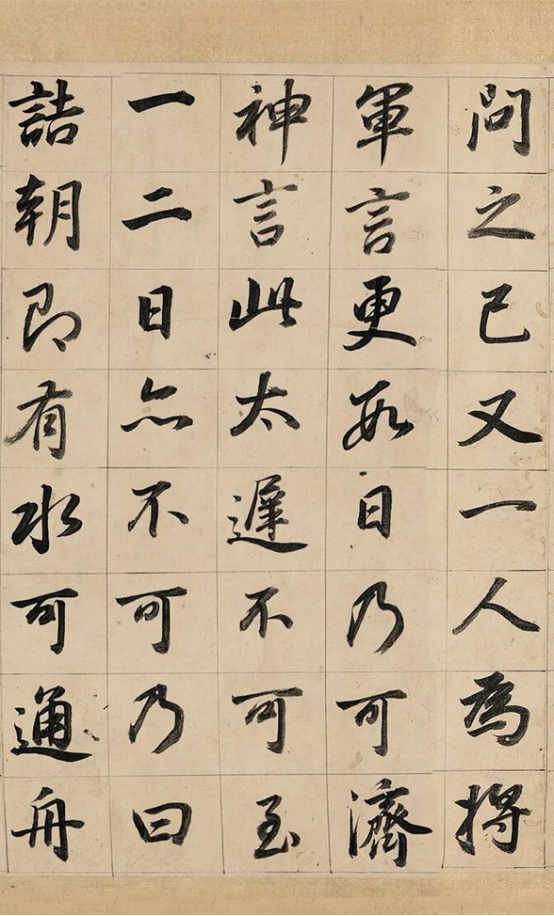 問之已又一人為将
軍言更數日乃可濟
神言此太遲不可至
一二日亦不可乃曰
詰朝即有水可通舟